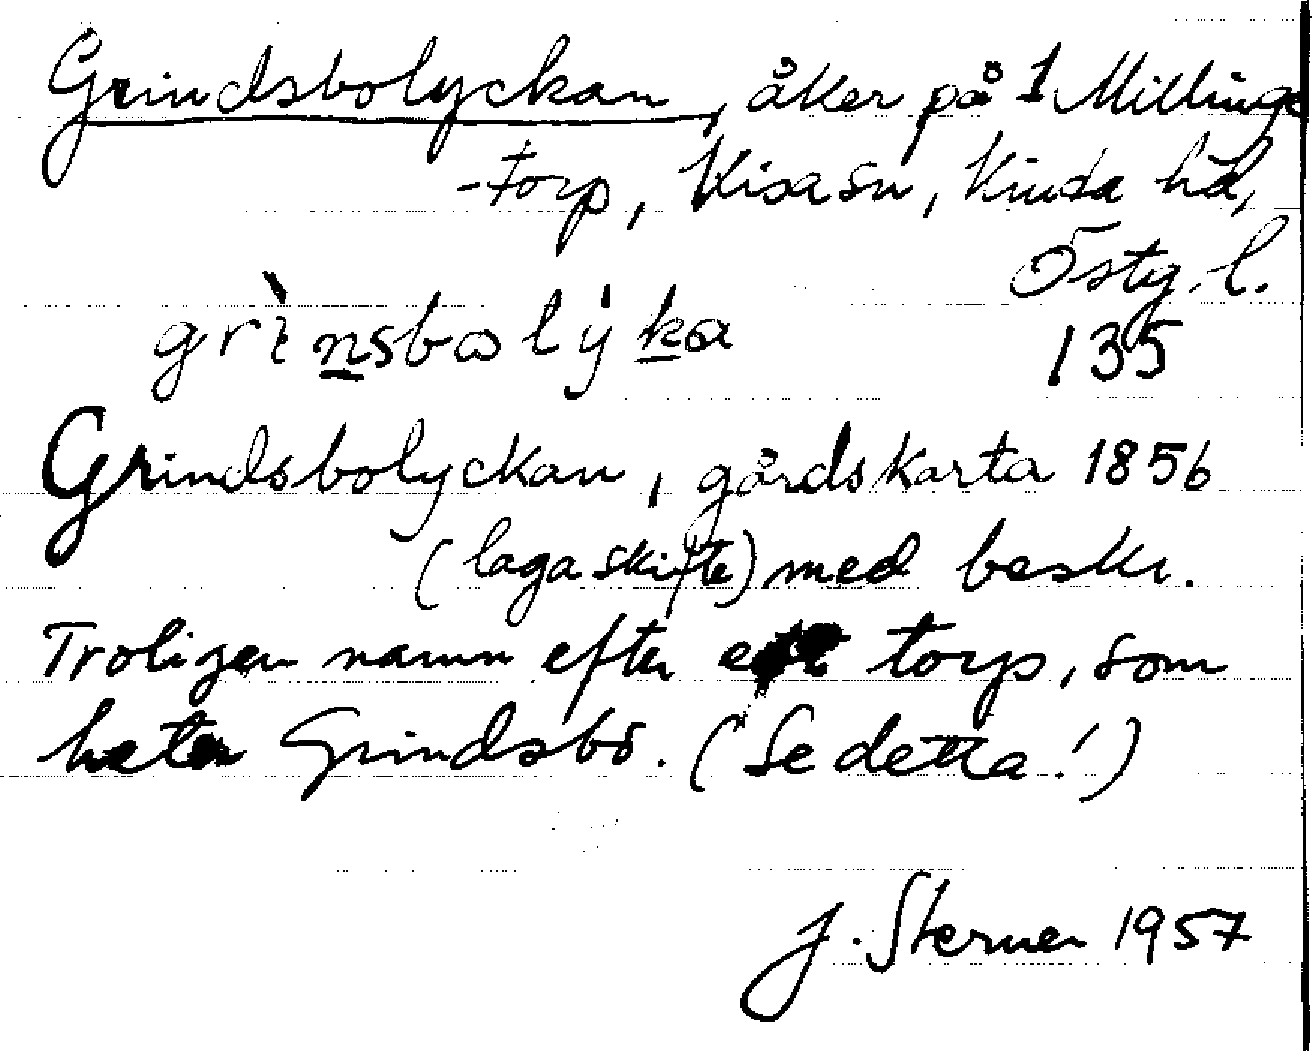 Grindsbolyckan, åker på 1 Millinge
-torp, Kisa sn, Kinda hd,
Östg. l.
grìnsbolýka
135
Grindsbolyckan, gårdskarta 1856
(laga skifte) med beskr.
Troligen namn efter ett torp, som
heter Grindsbo. (Se detta!)
J. Sterner 1957